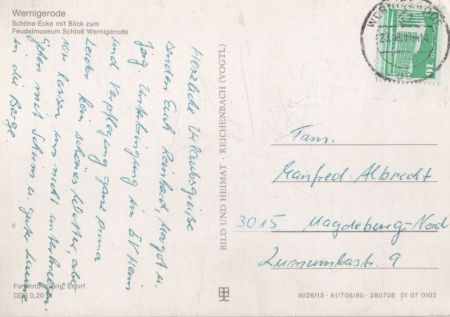 Wernigerode
Schöne Ecke mit Blick zum
Feudalmuseum Schloß Wernigerode
Herzliche Urlaubsgrüße
senden Euch Reinhard, Margot u.
Jörg. Unterbringung im
und Verpflegung ganz prima
Leider kein schönes Wetter, aber
wir lassen uns nicht unterkriegen.
Gehen mit Schirm u. guter Laune
in die Berge
Farbfoto: Erfurt
DDR 0,20
BILD UND HEIMAT REICHENBACH (VOGTL)
10
Fam.
Manfred Albrecht
3015 Magdeburg-Nord
Lumumbastr. 9
III/26/13 · A1/708/80 · 280708 01 07 0102